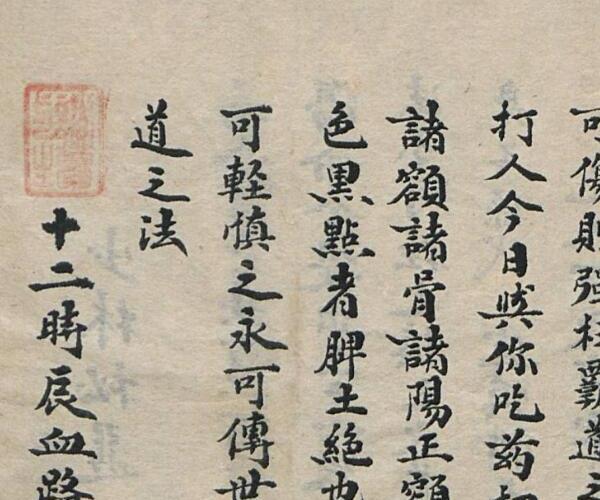 可傷則强杜斷道
打人今日與你吃药
諸額諸骨諸陽正額
色黑點者脾土絕也
可輕慎之永可傳世
道之法
十二時辰血路